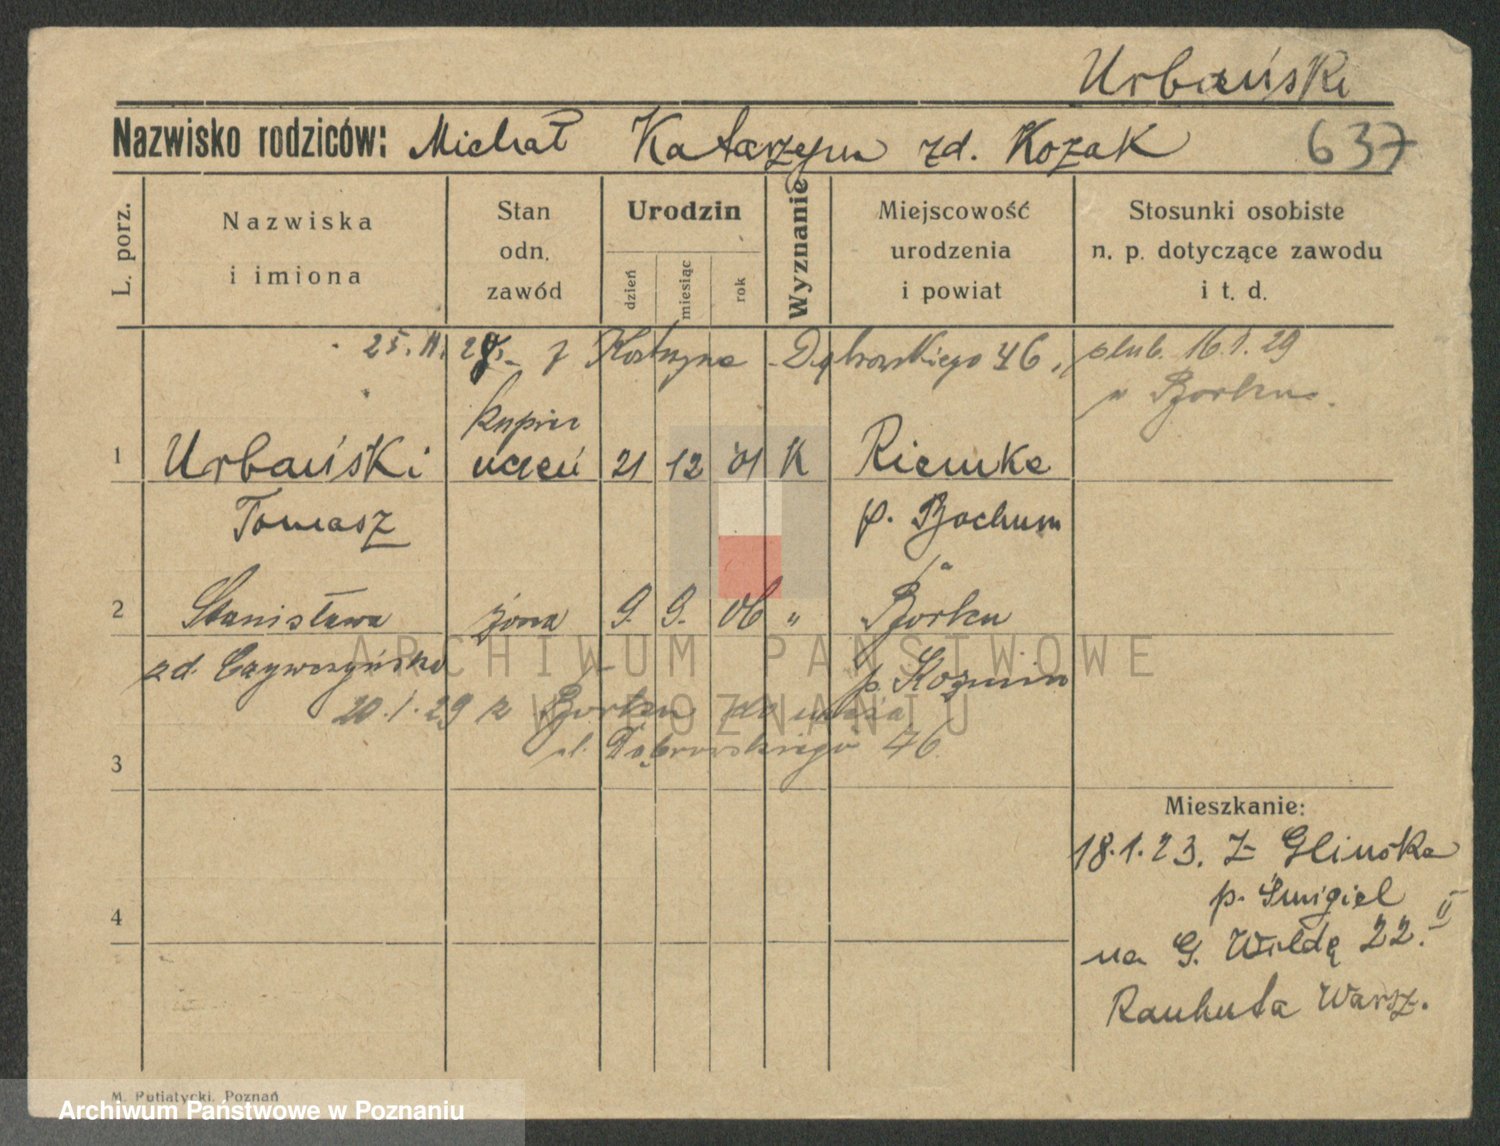 Urbański
Nazwisko rodziców: Michał Katarzyna zd. Kozak 637
L. porz.
Nazwiska i imiona
Stan odn. zawód
Urodzin
dzień miesiąc rok
Wyznanie
Miejscowość urodzenia i powiat
Stosunki osobiste n. p. dotyczące zawodu i t. d.
25. 11. 28. z Kostrzyna Dąbrowskiego 46 ślub. 16.1.29
w Borku.
kupiec
1 Urbański uczeń 21 12 01 K Riemke
Tomasz p. Bochum
2 Stanisława żona 9. 9. 06 " Borku
zd. p. Koźmin
20.1.29 z Borku do męża
3 ul. Dąbrowskiego 46.
Mieszkanie:
18.1.23. Z Glinska
p. Śmigiel
4
na G. Wildę 22. II
Rauhuta Warsz.
M. Putiatycki, Poznań
ARCHIWUM PAŃSTWOWE
W POZNANIU
Archiwum Państwowe w Poznaniu